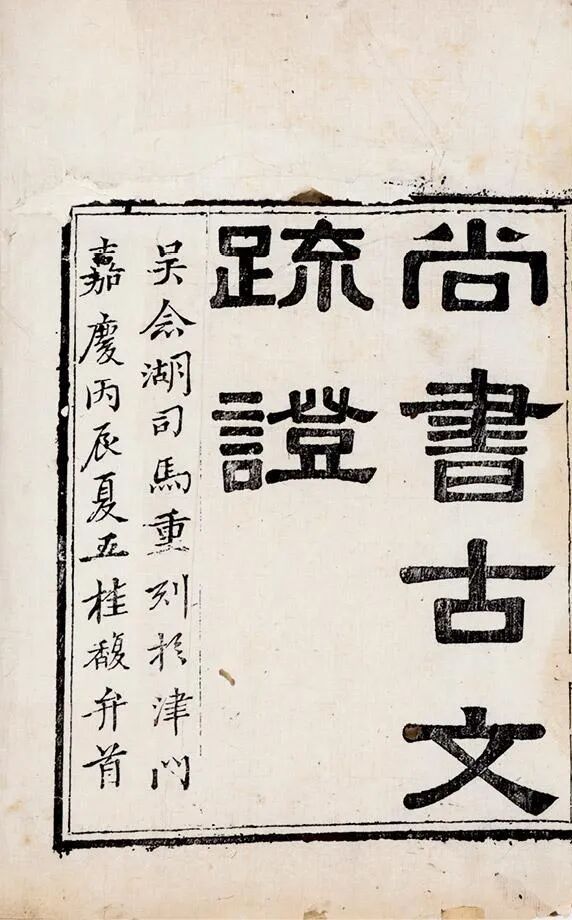 尚書古文
疏證
吴念湖司馬重刊於津門
嘉慶丙辰夏五桂馥弁首